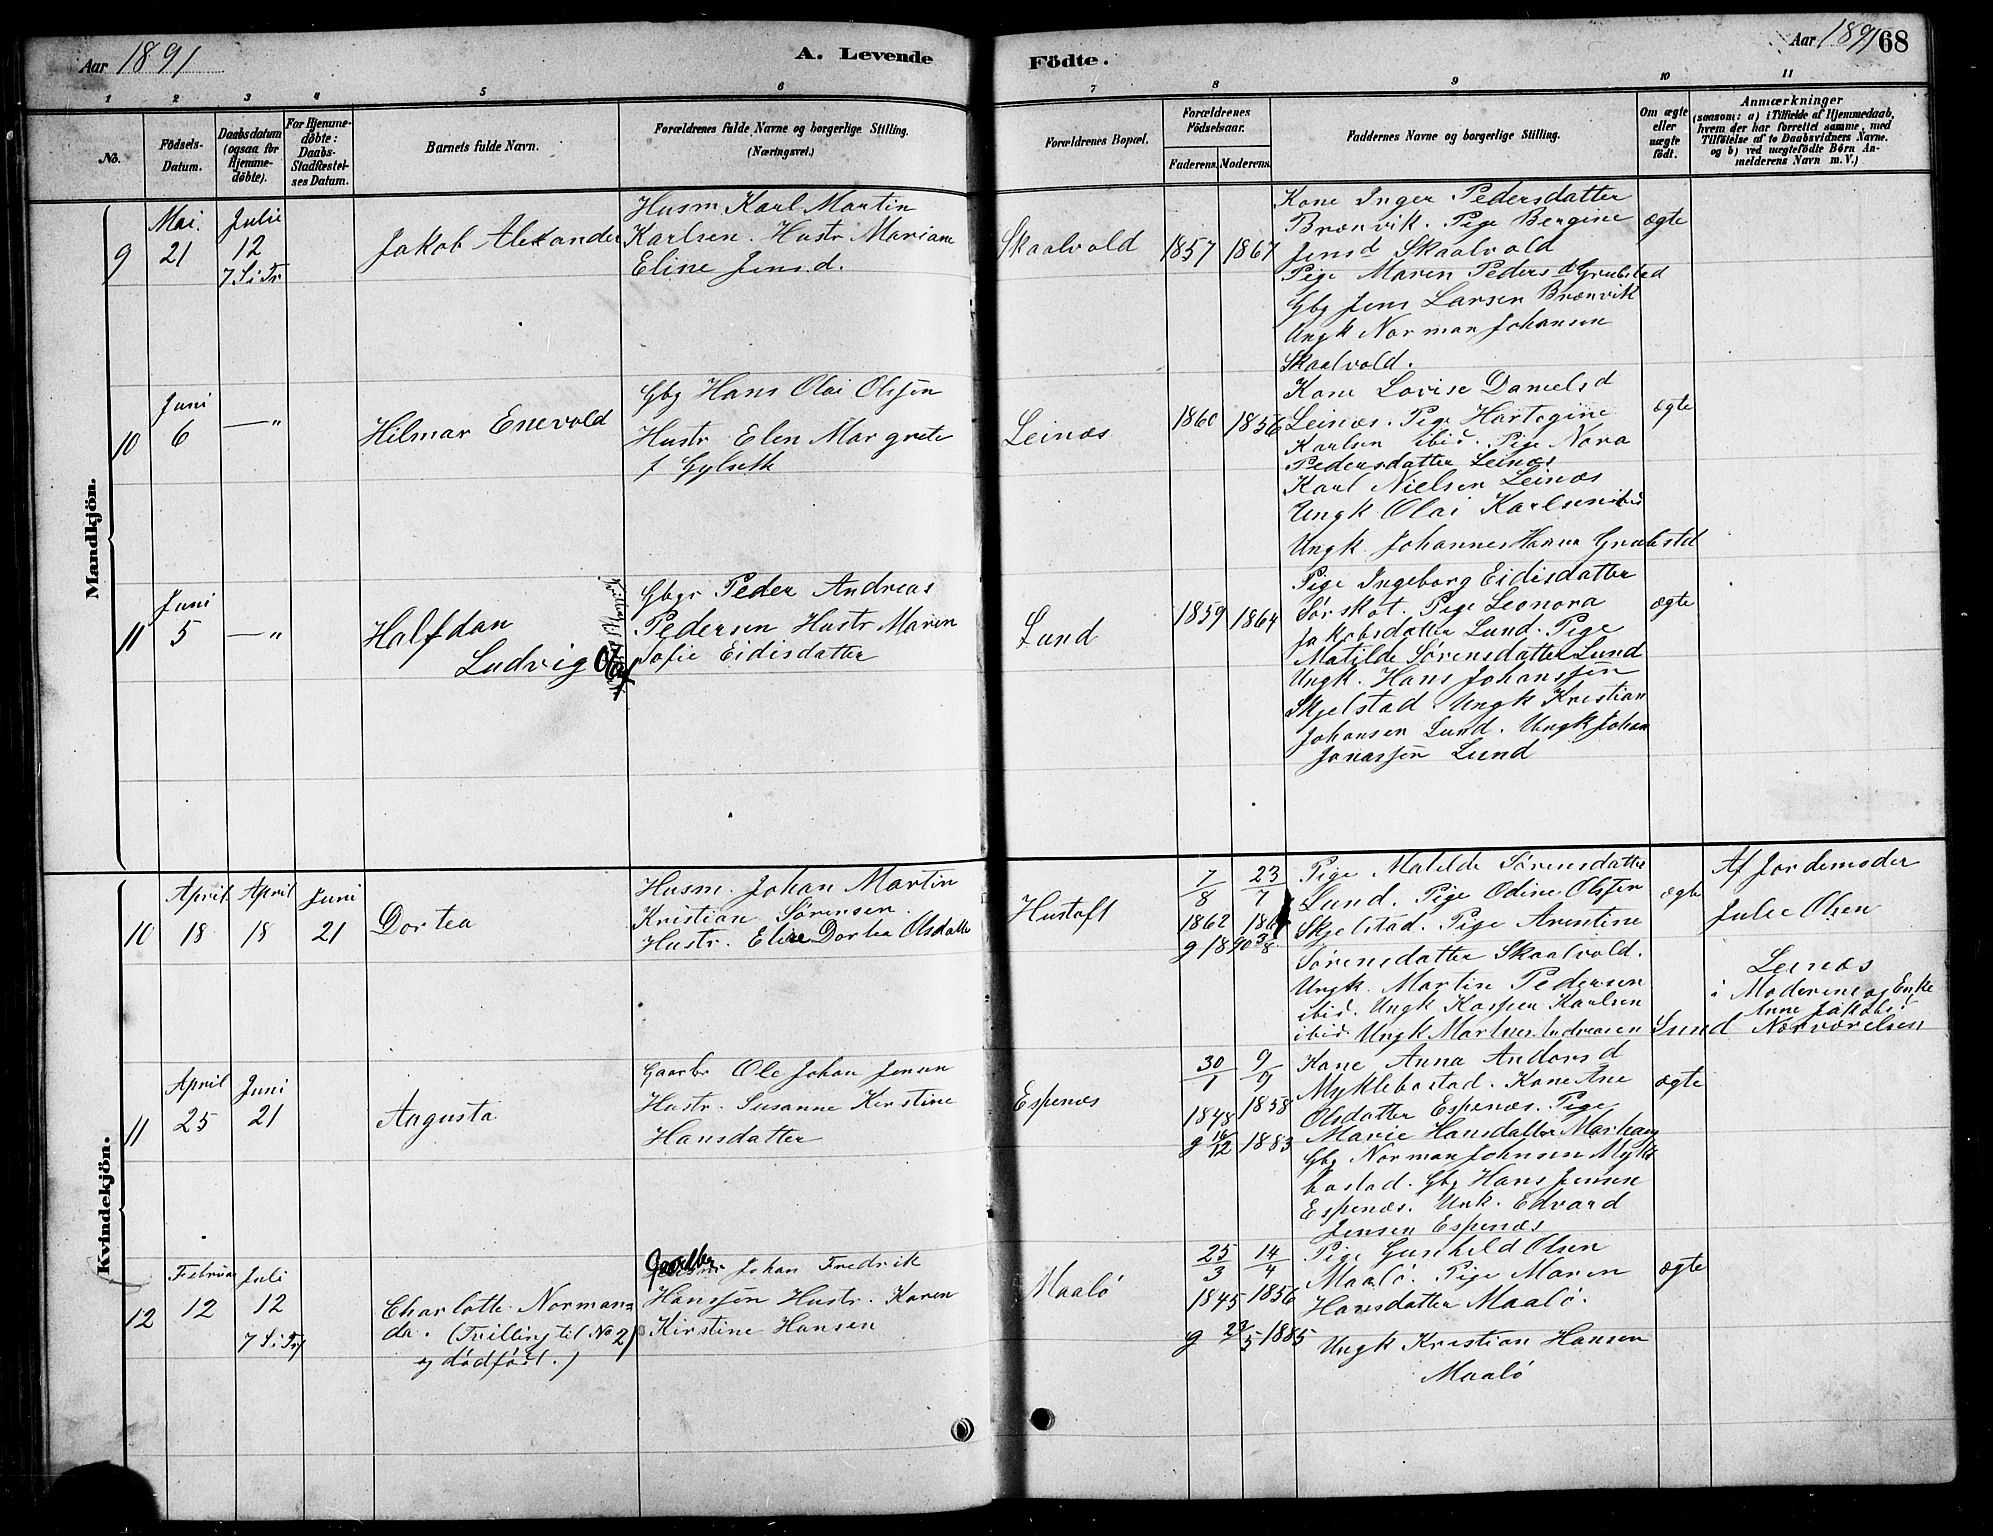 Aar 1891
A. Levende
Födte.
Aar 1891
68
1 2 3 4 5 6 7 8 9 10 11
No.
Födsels-
Datum.
Daabsdatum
(ogsaa för
Hjemme-
döbte).
For Hjemme-
döbte:
Daabs-
Stadfæstel-
ses Datum.
Barnets fulde Navn.
Forældrenes fulde Navne og borgerlige Stilling.
(Næringsvei.)
Forældrenes Bopæl.
Forældrenes
Födselsaar.
Faderens. Moderens.
Faddernes Navne og borgerlige Stilling.
Om ægte
eller
uægte
födt.
Anmærkninger
(saasom: a) i Tilfælde af Hjemmedaab,
hvem der har forrettet samme, med
Tilföielse af to Daabsvidners Navne.
og b) ved uægtefödte Börn An-
melderens Navn m. V.)
Mandkjön.
9
Mai.
21
Julie
12
7 S. i Tr
Jakob Alexander
Husm. Karl Martin
Karlsen. Hustr Mariane
Eline Jensd.
Skaalvold
1857 1867
Kone Inger Pedersdatter
Brænvik. Pige Bergine
Jensd Skaalvold
Pige Maren Pedersd Grubstad
Gbg Jens Larsen Brænvik
Ungk Norman Johansen
Skaalvold.
ægte
10
Juni
6
—"
Hilmar Enevold
Gbg Hans Olai Olsen
Hustr Elen Margrete
f Gylseth
Leinæs
1860 1856
Kone Lovise Danielsd
Leinæs. Pige Hartogine
Karlsen ibid. Pige Nora
Pedersdatter Leinæs
Karl Nielsen Leinæs
Ungk Olai Karlsen ibid
Ungk. Johannes Hansen Grubstd
ægte
11
Juni
5
—"
Halfdan
Ludvig Olaf
Gbgr Peder Andreas
Pedersen Hustr Maren
Sofie Eidisdatter
Lund
1859 1864
Pige Ingeborg Eidisdatter
Sørskot. Pige Leonora
Jakobsdatter Lund. Pige
Matilde Sørensdatter Lund
Ungk. Hans Johanssen
Skjelstad. Ungk Kristian
Johansen Lund. Ungk Johan
Jonassen Lund
ægte
Kvindekjön.
10
April
18
April
18
Juni
21
Dortea
Husm. Johan Martin
Kristian Sørensen.
Hustr. Eline Dortea Olsdatter
Hustoft
7/8 23/7
1862
g 1890 3/8
Pige Matilde Sørensdatter
Lund. Pige Odine Olssen
Skjelstad. Pige Arntine
Sørensdatter Skaalvold.
Ungk. Martin Pedersen
ibid. Ungk Kasper Karlsen
ibid. Ungk Martines Andreasen Lund
ægte
Af Jordemoder
Julie Olsen
Leinæs
i Moderens og Enke
Anne Jakobs
Nærværelsen
11
April
25
Juni
21
Augusta
Gaarbr Ole Johan Jensen
Hustr. Susanne Kirstine
Hansdatter
Espenæs
30/1 9/9
1848 1858
g 16/12 1883
Kone Anna Andersd
Myklebostad. Kone Ane
Olsdatter Espenæs. Pige
Marie Hansdatter
Gbg Norman Johnsen Mykle
bostad. Gbg Hans Jensen
Espenæs. Unk. Edvard
Jensen Espenæs
ægte
12
Februar
12
Juli
12
7 S. i Tr
Charlotte Norman-
da. (Tvilling til No 2)
og dødfødt.)
Johan Fredrik
Hanssen Hustr. Karen
Kirstine Hansen
Maalö
25/3 14/4
1845 1856
g 23/5 1885
Pige Gunhild Olsen
Maalö. Pige Maren
Hansdatter Maalö.
Ungk Kristian Hansen
Maalö
ægte